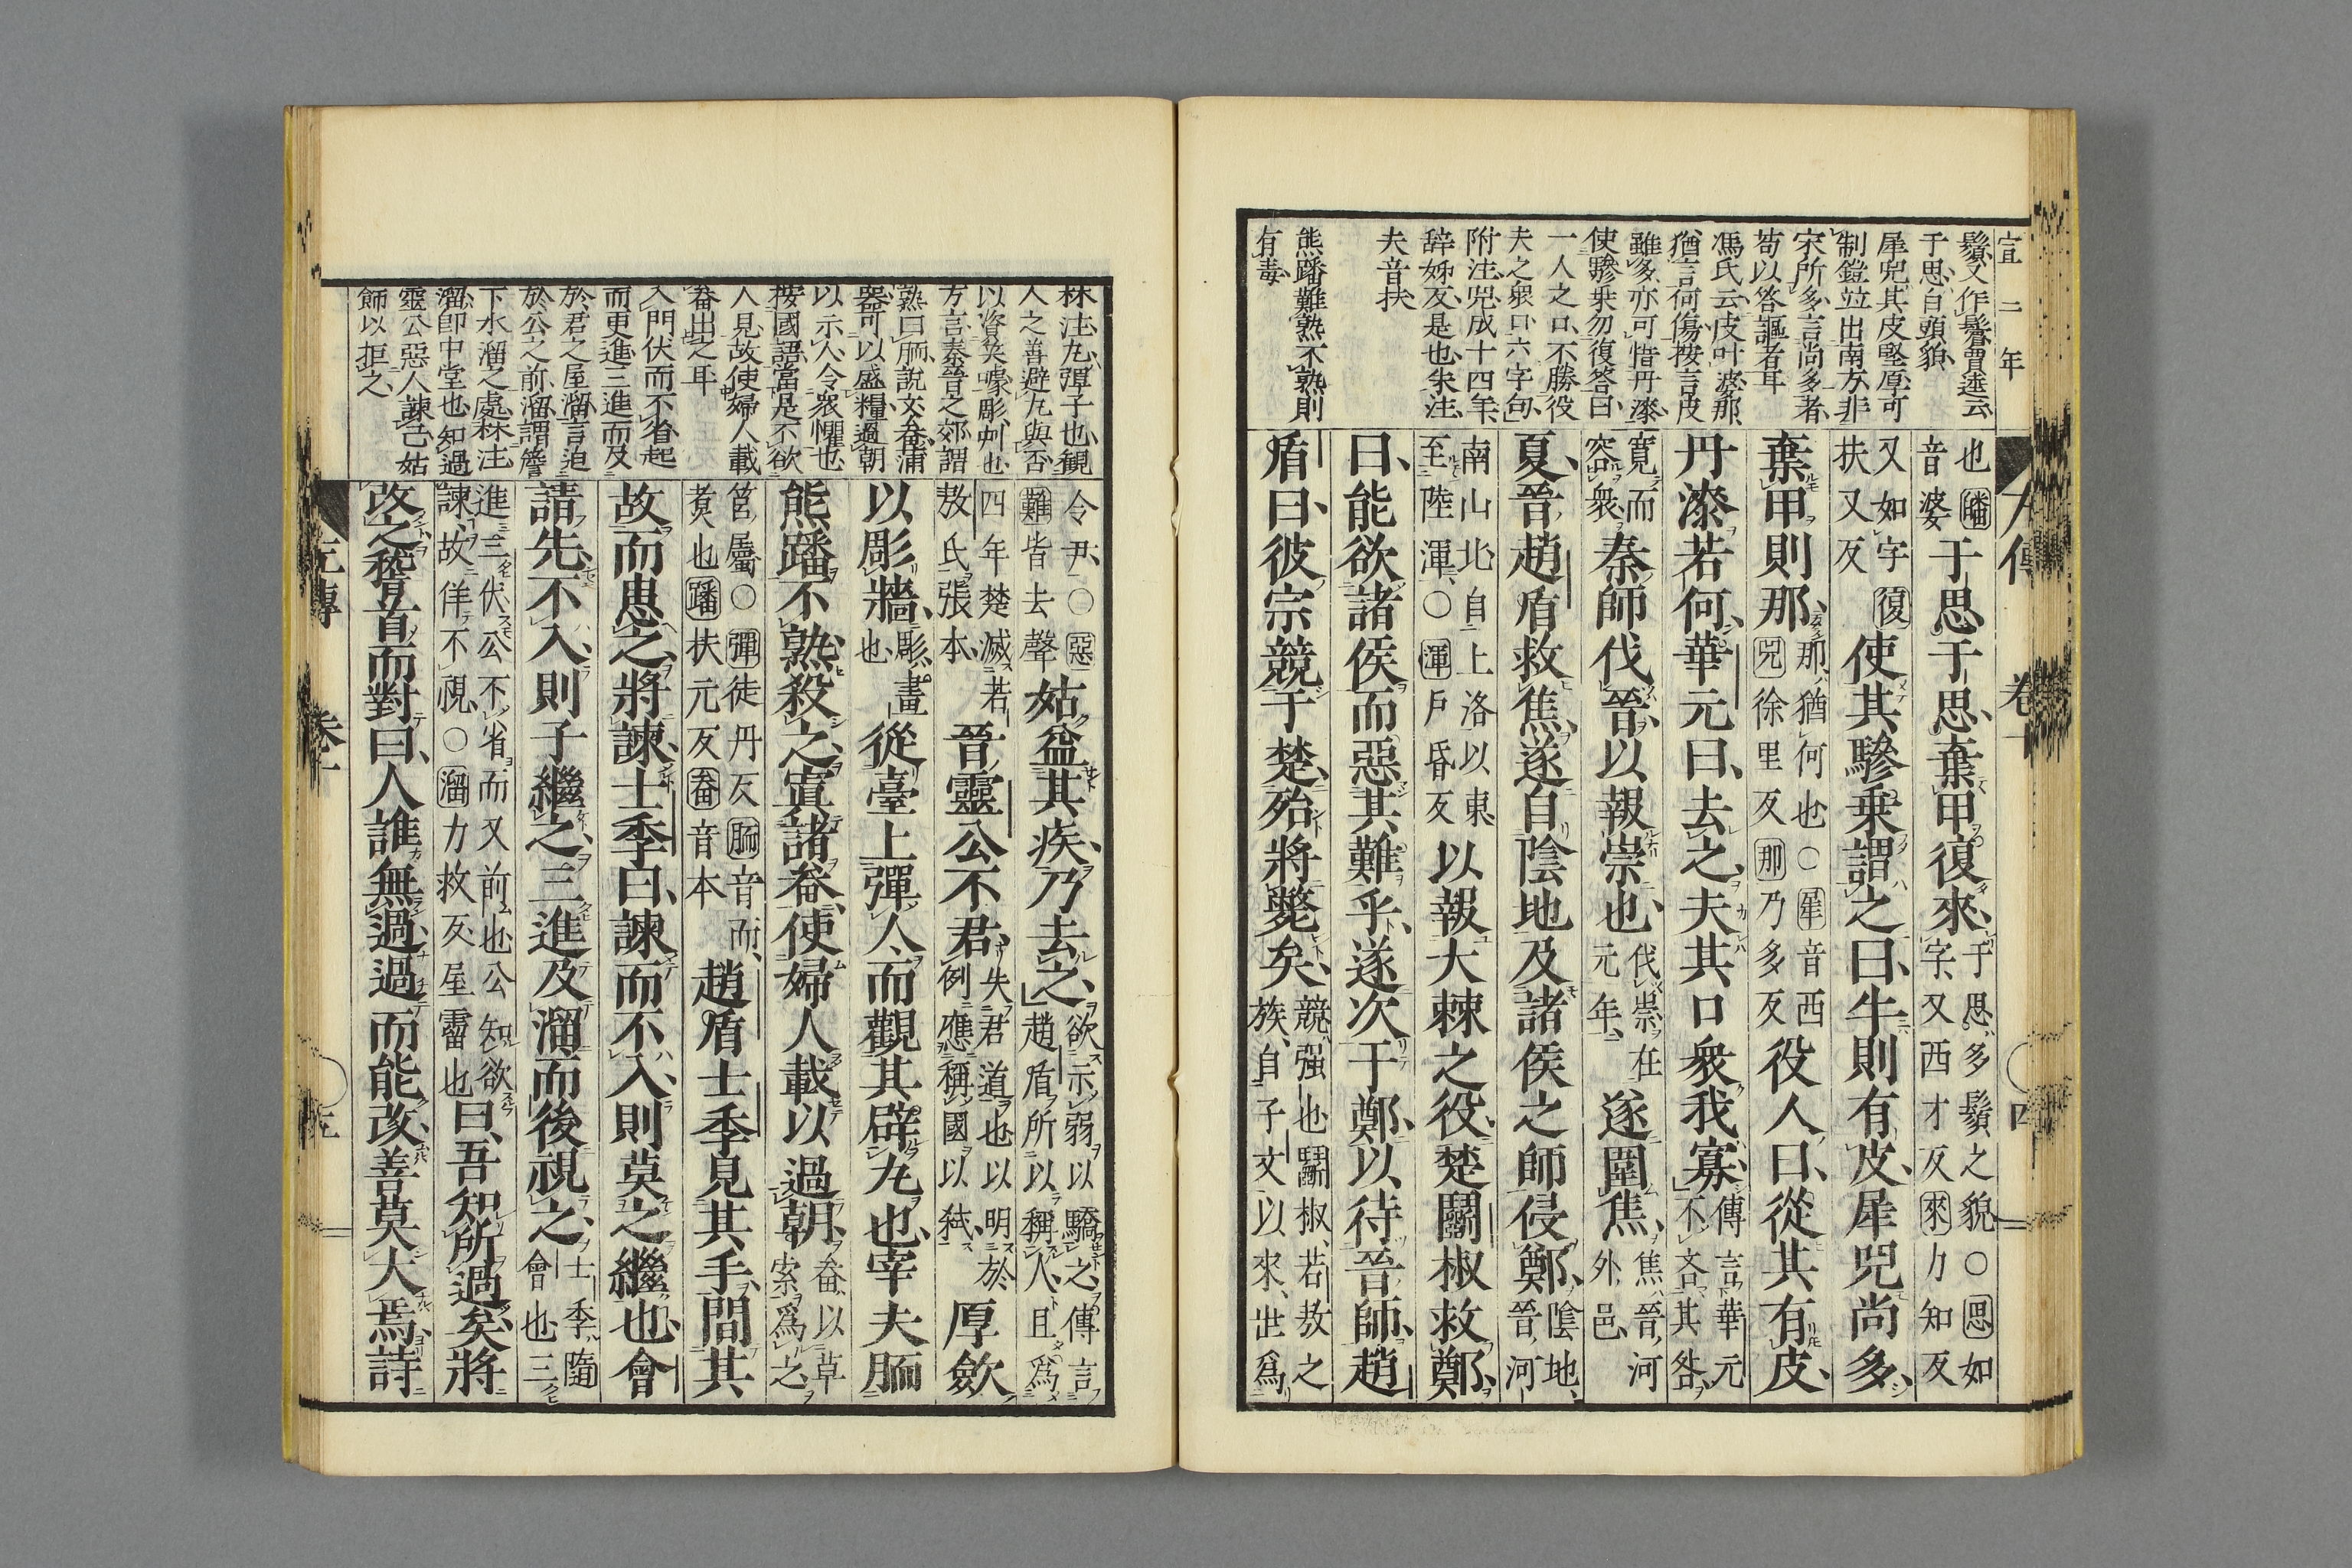 宣二年
鬚又作鬢賈逵云
于思白頭貌
犀兕其皮堅厚可
制鎧竝出南方非
宋所多言尚多者
苟以答謳者耳
馮氏云皮叶婆那
猶言何傷按言皮
雖多亦可惜丹漆
使驂乗勿復答曰
一人之口不勝役
夫之衆口六字句
附注兕成十四年
辭姊反是也朱注
夫音扶
熊蹯難熟不熟則
有毒
也皤
音婆
于思于思棄甲復來
于思多鬚之貌○思如
字又西才反來力知反
又如字復
扶又反
使其驂乗謂之曰牛則有皮犀兕尚多
棄甲則那
那猶何也○犀音西
兕徐里反那乃多反
役人曰從其有皮
丹漆若何華元曰去之夫其口衆我寡
傳言華元
不吝其咎
寬而
容衆
秦師伐晉以報崇也
伐崇在
元年
遂圍焦
焦晉河
外邑
夏晉趙盾救焦遂自陰地及諸侯之師侵鄭
陰地
晉河
南山北自上洛以東
至陸渾○渾戶昏反
以報大棘之役楚鬭椒救鄭
曰能欲諸侯而惡其難乎遂次于鄭以待晉師趙
盾曰彼宗競于楚殆將斃矣
競强也鬭椒若敖之
族自子文以來世爲
左傳 卷十 四
林注丸彈子也觀
人之善避丸與否
以資笑噱彫刺也
方言秦晉之郊謂
熟曰胹說文畚蒲
器可以盛糧過朝
以示人令衆懼也
按國語當是不欲
人見故使婦人載
畚出之耳
入門伏而不省起
而更進三進而及
於君之屋溜言迫
於公之前溜謂簷
下水溜之處林注
溜卽中堂也知過
靈公惡人諫己姑
飾以拒之
令尹○惡
難皆去聲
姑益其疾乃去之
欲示弱以驕之傳言
趙盾所以稱人且爲
四年楚滅若
敖氏張本
晉靈公不君
失君道也以明於
例應稱國以弒
厚斂
以彫牆
彫畫
也
從臺上彈人而觀其辟丸也宰夫胹
熊蹯不熟殺之寘諸畚使婦人載以過朝
畚以草
索爲之
筥屬○彈徒丹反胹音而
煑也蹯扶元反畚音本
趙盾士季見其手問其
故而患之將諫士季曰諫而不入則莫之繼也會
請先不入則子繼之三進及溜而後視之
士季隨
會也三
進三伏公不省而又前也公知欲
諫故佯不視○溜力救反屋霤也
曰吾知所過矣將
改之稽首而對曰人誰無過過而能改善莫大焉詩
左傳 卷十 五